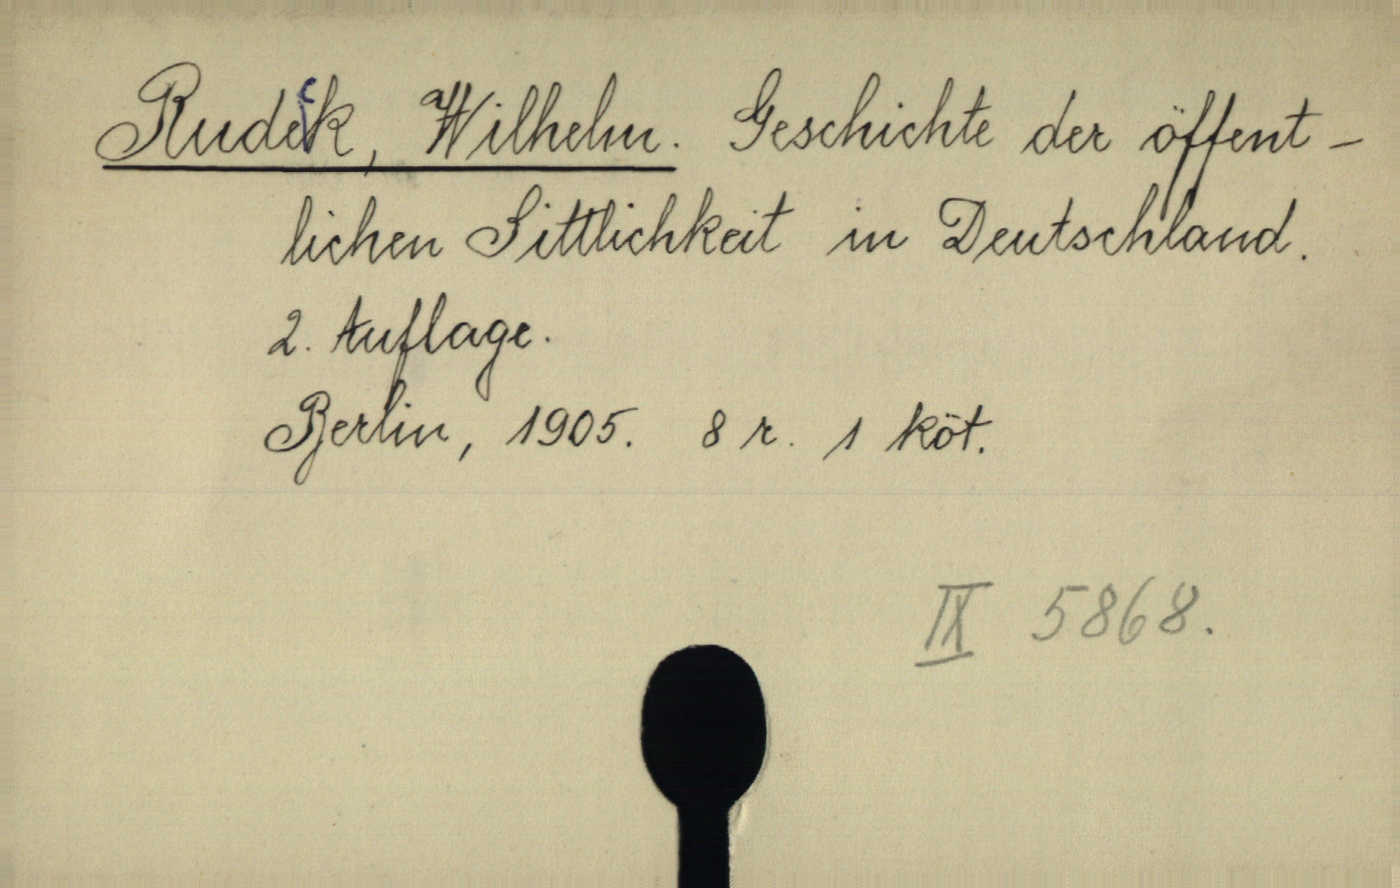 Rudeck, Wilhelm. Geschichte der öffent-
lichen Sittlichkeit in Deutschland.
2. Auflage.
Berlin, 1905. 8 r. 1 köt.
IX 5868.